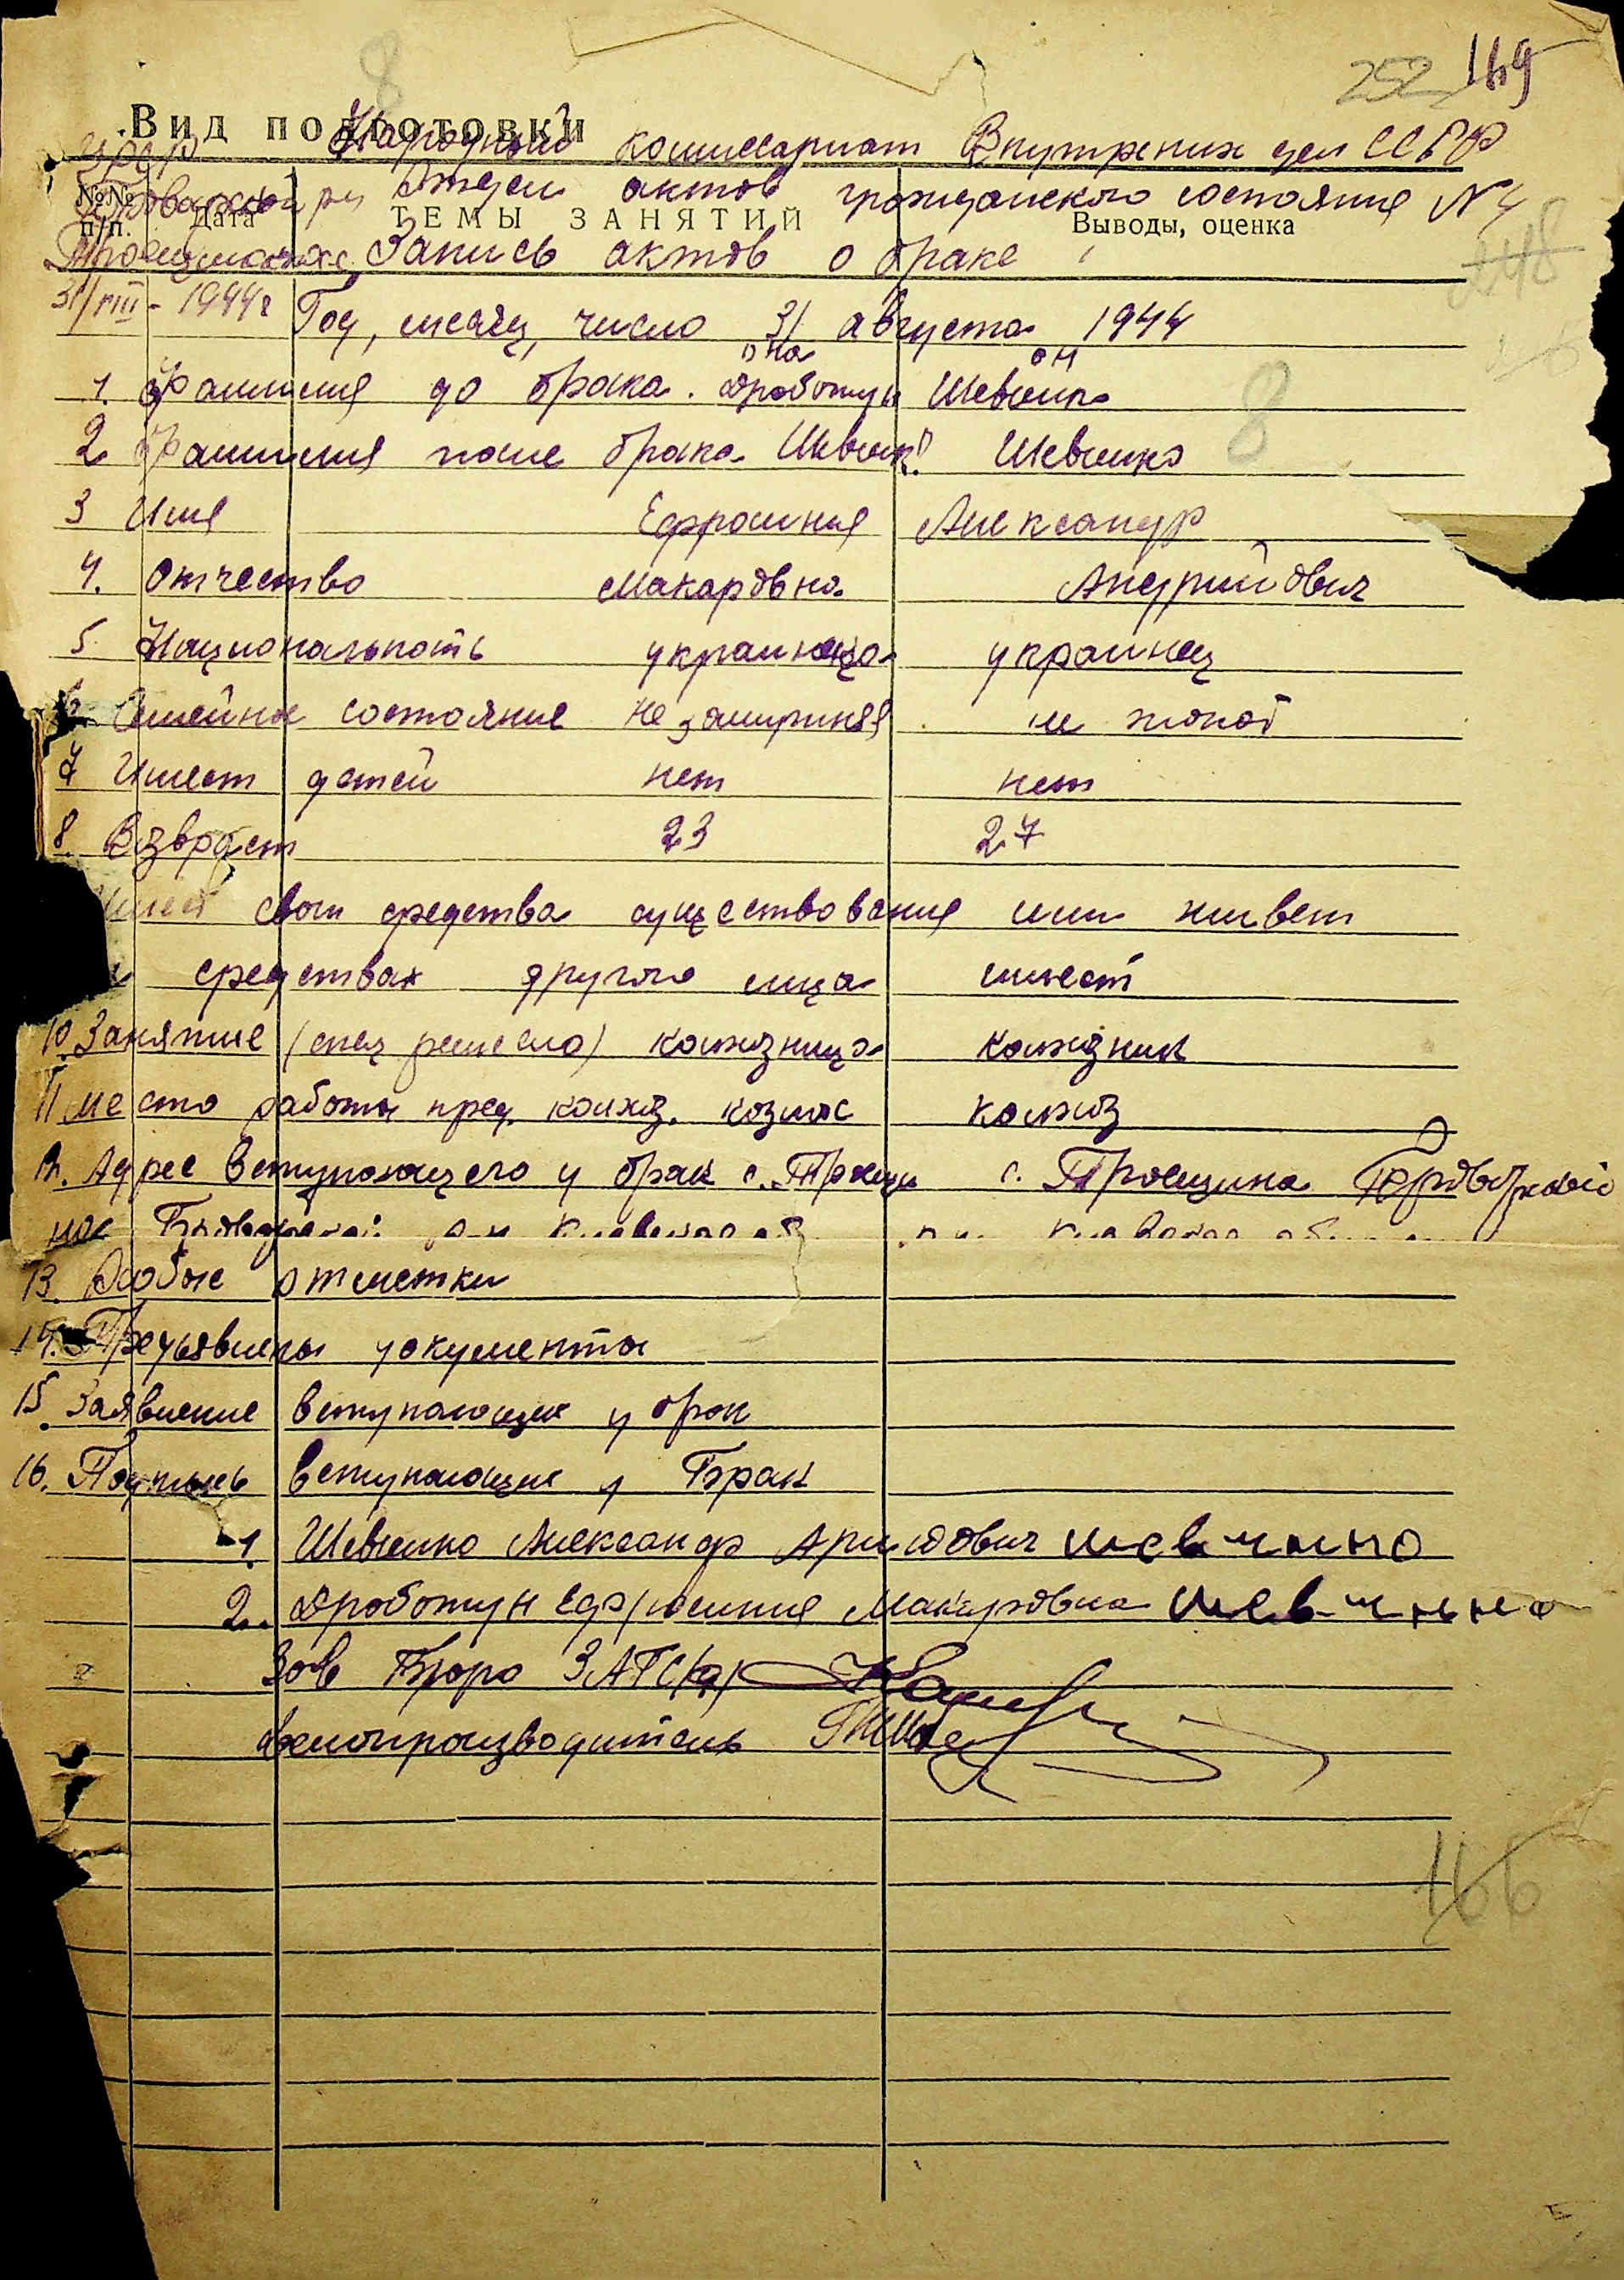 252 169
8
Вид подготовки
УРСР Народный комиссариат Внутрених дел ССРР
Отдел актов гражданского состояния № 4
№№ п/п. Дата ТЕМЫ ЗАНЯТИЙ Выводы, оценка
Запись актов о браке
248
31/VIII - 1944г Год, месяц, число 31 августа 1944
она он
1. Фамилия до брака. Дроботун Шевченко
8
2 Фамилия после брака Шевченко Шевченко
3 Имя Ефросиния Александр
4. Отчество Макаровна Андрийович
5. Национальность украинка украинец
6. Семейное состояние не замужняя не жонат
7 Имеет детей нет нет
8. Возвраст 23 27
Имеет свои средства существования или живет
средствах другого лица имеет
10. Занятие (спец ремесло) колхозница колхозник
11 Место работы пред. колхоз. колхоз колхоз
12. Адрес вступающего у брак с. Троещи с. Троещина Броварской
ной Броварской р-н Киевской об р-н Киевской об
13. Особые отметки
14. Предъявлены документы
15. Заявление вступающих у брак
16. Подпись вступающих у Брак
1. Шевченко Александр Шевченко
2. Дроботун Ефросиния Макаровна Шевченко
Зав Бюро ЗАГС(а)
Делопроизводитель
166